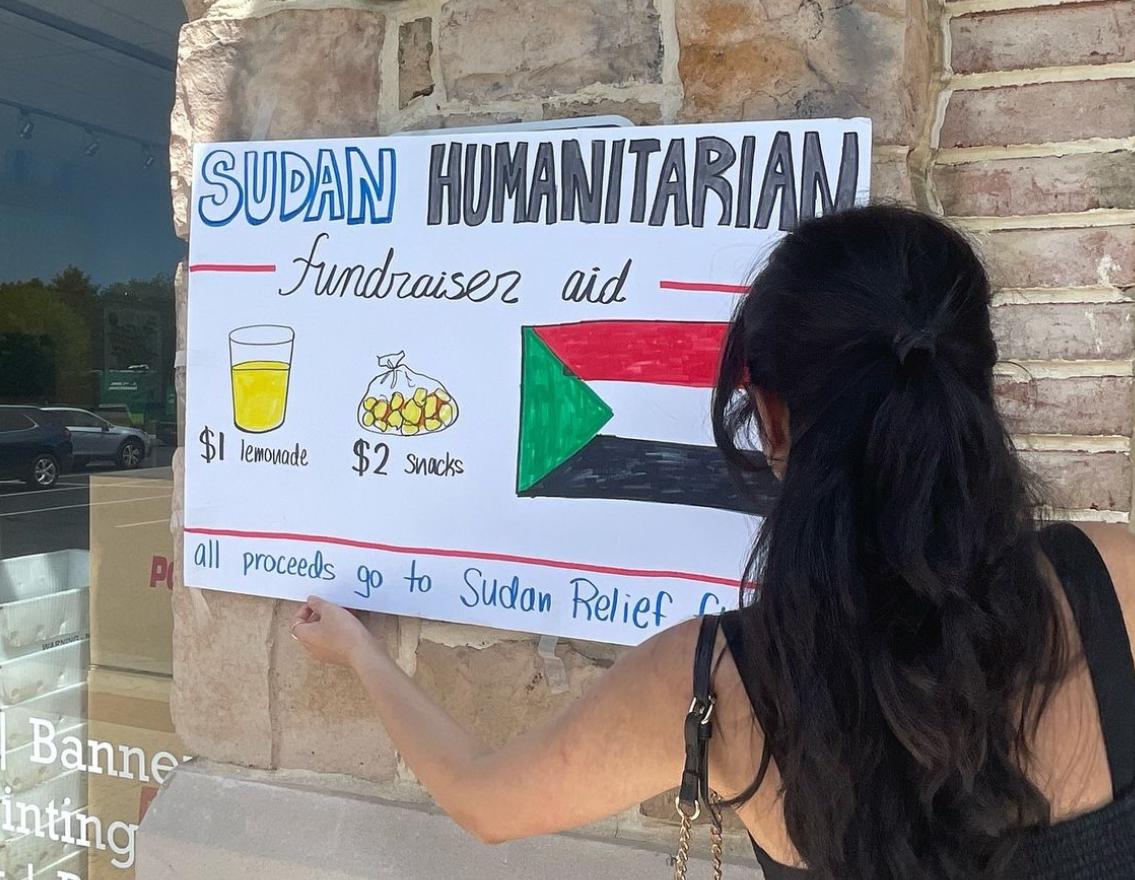 SUDAN HUMANITARIAN
fundraiser aid
$1 lemonade
$2 snacks
all proceeds go to Sudan Relief
WARNING
Banne
inting